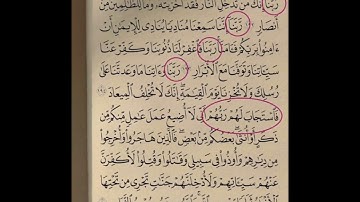 رَبَّنَآ إِنَّكَ مَن تُدْخِلِ ٱلنَّارَ فَقَدْ أَخْزَيْتَهُۥ وَمَا لِلظَّٰلِمِينَ مِنْ
أَنصَارٍ رَّبَّنَآ إِنَّنَا سَمِعْنَا مُنَادِيًا يُنَادِى لِلْإِيمَٰنِ أَنْ
ءَامِنُوا۟ بِرَبِّكُمْ فَـَٔامَنَّا رَبَّنَا فَٱغْفِرْ لَنَا ذُنُوبَنَا وَكَفِّرْ عَنَّا
سَيِّـَٔاتِنَا وَتَوَفَّنَا مَعَ ٱلْأَبْرَارِ رَبَّنَا وَءَاتِنَا مَا وَعَدتَّنَا عَلَىٰ
رُسُلِكَ وَلَا تُخْزِنَا يَوْمَ ٱلْقِيَٰمَةِ إِنَّكَ لَا تُخْلِفُ ٱلْمِيعَادَ
فَٱسْتَجَابَ لَهُمْ رَبُّهُمْ أَنِّى لَآ أُضِيعُ عَمَلَ عَٰمِلٍ مِّنكُم مِّن
ذَكَرٍ أَوْ أُنثَىٰ بَعْضُكُم مِّنۢ بَعْضٍ فَٱلَّذِينَ هَاجَرُوا۟ وَأُخْرِجُوا۟
مِن دِيَٰرِهِمْ وَأُوذُوا۟ فِى سَبِيلِى وَقَٰتَلُوا۟ وَقُتِلُوا۟ لَأُكَفِّرَنَّ
عَنْهُمْ سَيِّـَٔاتِهِمْ وَلَأُدْخِلَنَّهُمْ جَنَّٰتٍ تَجْرِى مِن تَحْتِهَا